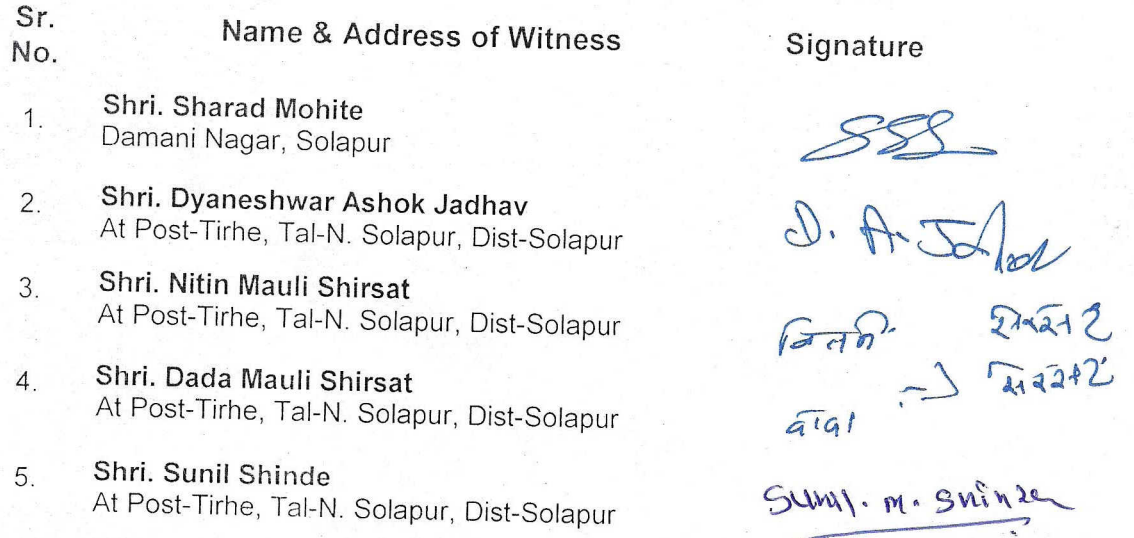 Sr.
No.
Name & Address of Witness
Signature
1. Shri. Sharad Mohite
Damani Nagar, Solapur
2. Shri. Dyaneshwar Ashok Jadhav
At Post-Tirhe, Tal-N. Solapur, Dist-Solapur
D. A.
3. Shri. Nitin Mauli Shirsat
At Post-Tirhe, Tal-N. Solapur, Dist-Solapur
4. Shri. Dada Mauli Shirsat
At Post-Tirhe, Tal-N. Solapur, Dist-Solapur
5. Shri. Sunil Shinde
At Post-Tirhe, Tal-N. Solapur, Dist-Solapur